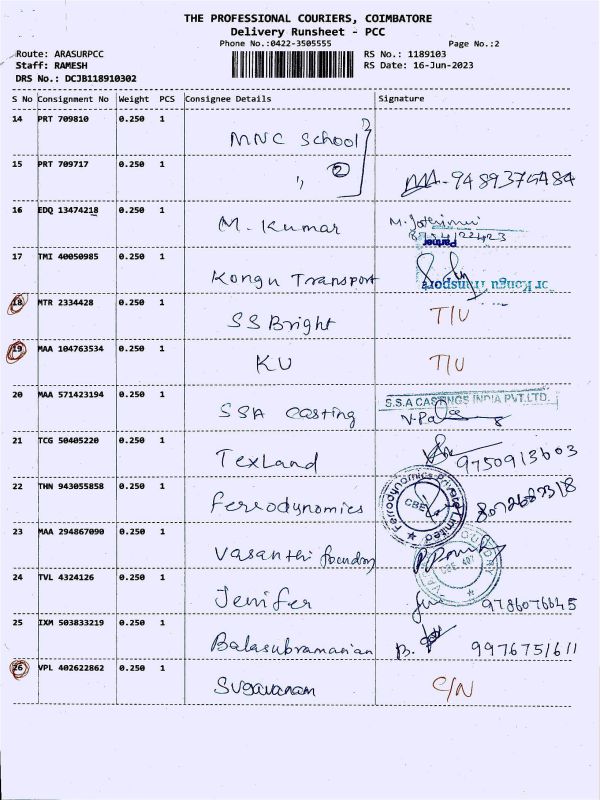 THE PROFESSIONAL COURIERS, COIMBATORE
Delivery Runsheet - PCC
Phone No.:0422-3505555 Page No.:2
Route: ARASURPCC RS No.: 1189103
Staff: RAMESH RS Date: 16-Jun-2023
DRS No.: DCJB118910302
S No Consignment No Weight PCS Consignee Details Signature
14 PRT 709810 0.250 1 MNC School
15 PRT 709717 0.250 1 ,, 2 9489375484
16 EDQ 13474218 0.250 1 M. Kumar
Partner
17 TMI 40050985 0.250 1 Kongu Transport
or Kongu Transport
18 MTR 2334428 0.250 1 SS Bright T/U
19 MAA 104763534 0.250 1 KU T/U
20 MAA 571423194 0.250 1 SSA Casting S.S.A CASTINGS INDIA PVT.LTD.
21 TCG 50405220 0.250 1 Texland 9750913603
22 THN 943055858 0.250 1 Ferrodynomics Ferrodynamics Private Limited CBE
23 MAA 294867090 0.250 1 Vasanthi foundry
24 TVL 4324126 0.250 1 Jenifer 9786076645
25 IXM 503833219 0.250 1 Balasubramanian B. 9976751611
26 VPL 402622862 0.250 1 Sugavanam C/N